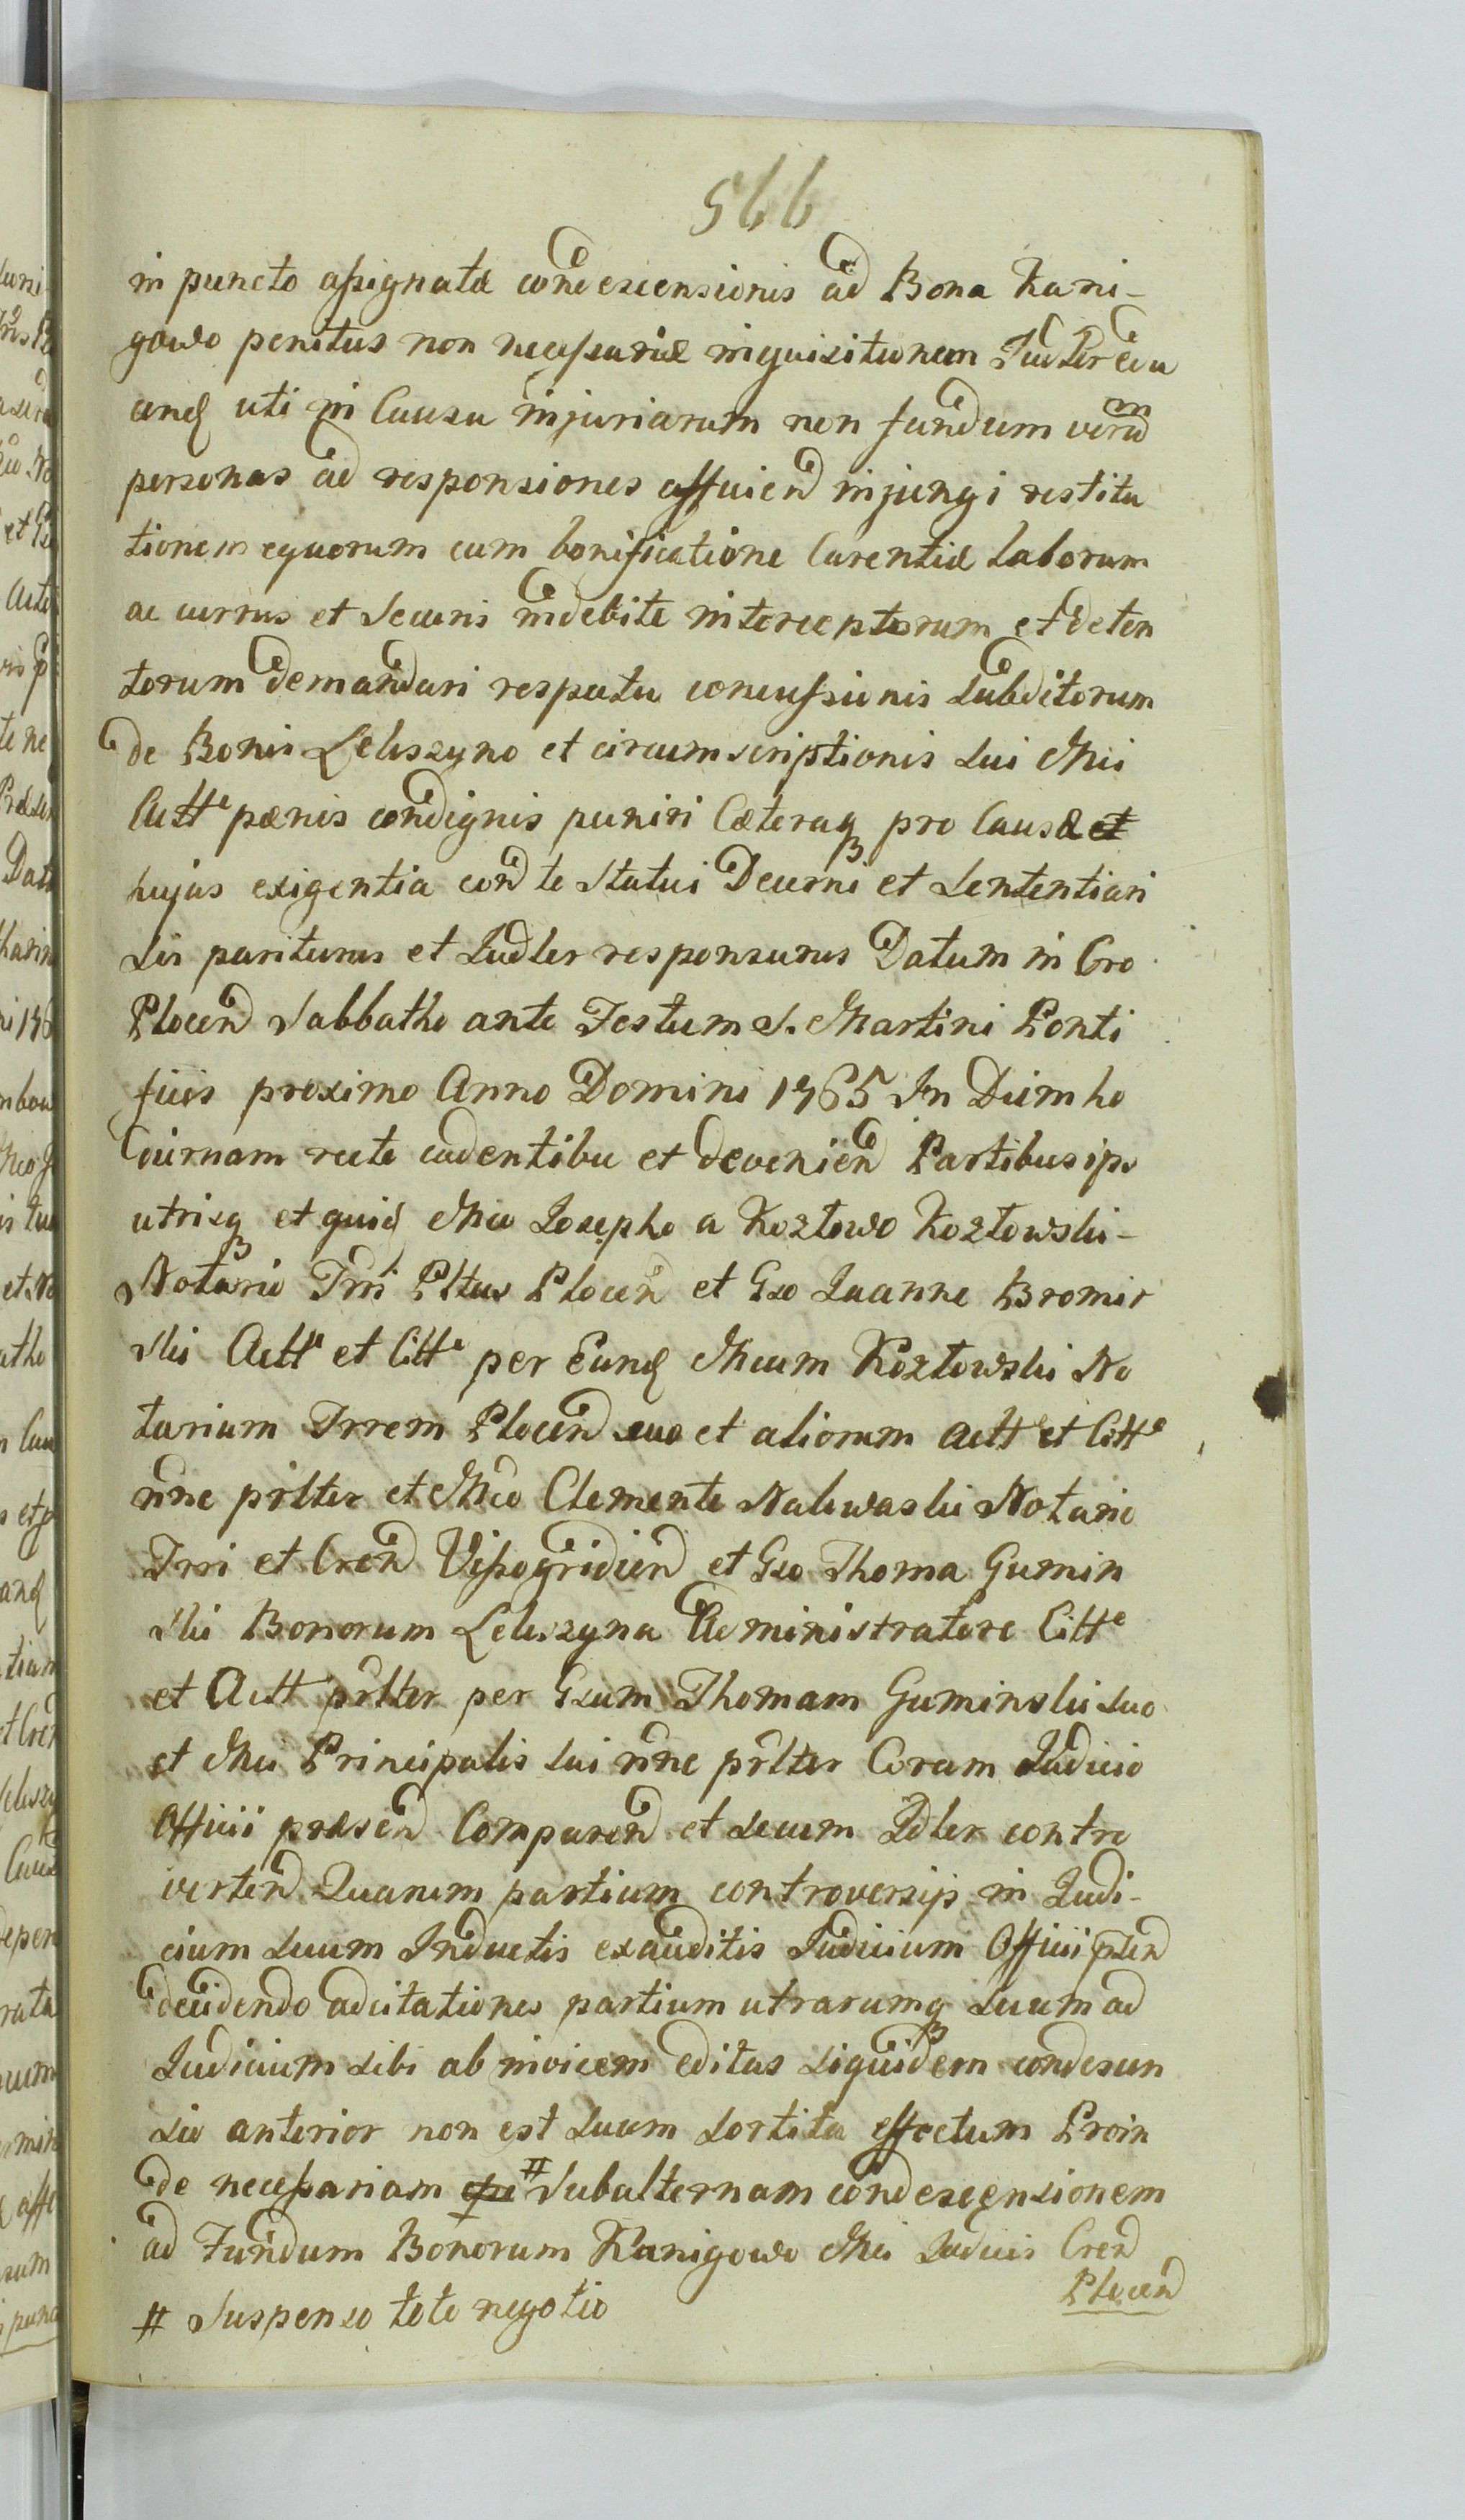 566
in puncto assignatæ condescensionis ad Bona Kani-
gowo penitus non necessariæ inquisitionem Judler
anq uti in Causa injuriarum non fundum verum
personas ad responsiones afficien injungi restitu
tionem equorum cum bonificatione Carentiæ Laborum
ac currus et Securis indebite interceptorum et deten
torum demandari respectu concussionis Subditorum
de Bonis Leleszyno et circumscriptionis sui Mci
Actt pænis condignis puniri Cæteraq pro Causæ et
hujus exigentia cond te Statui Decerni et Sententiari
Sis pariturus et Judler responsurus Datum in Cro
Plocen Sabbatho ante Festum S. Martini Ponti
ficis proximo Anno Domini 1765 In Diem ho
diernam recte cadentibu et devenien Partibus ips
utrisq et quid Mco Josepho a Kozłowo Kozłowski-
Notario Trri Pltus Plocen et Gso Joanne Bromir
ski Actt et Citt per Eund Mcum Kozłowski No
tarium Trrem Plocen suo et aliorum Actt et Citt
nne prltter et Mco Clemente Nakwaski Notario
Trri et Cren Vissogrodien et Gso Thoma Gumin
ski Bonorum Leleszyna Administratore Citt
et Actt prltter per Gsum Thomam Guminski suo
et Mci Principalis sui nne prltter Coram Judicio
Officii præsen Comparen et secum Jdler contro
verten Quarum partium controversijs in Judi-
cium suum Inductis exauditis Judicium Officii pnsen
decidendo adcitationes partium utrarumq suum ad
Judicium sibi ab invicem editas siquidem condescen
sio anterior non est suum sortita effectum Proin
de necessariam # Subalternam condescensionem
ad Fundum Bonorum Kanigowo Mci Judicis Cren
Plocen
# Suspenso toto negotio